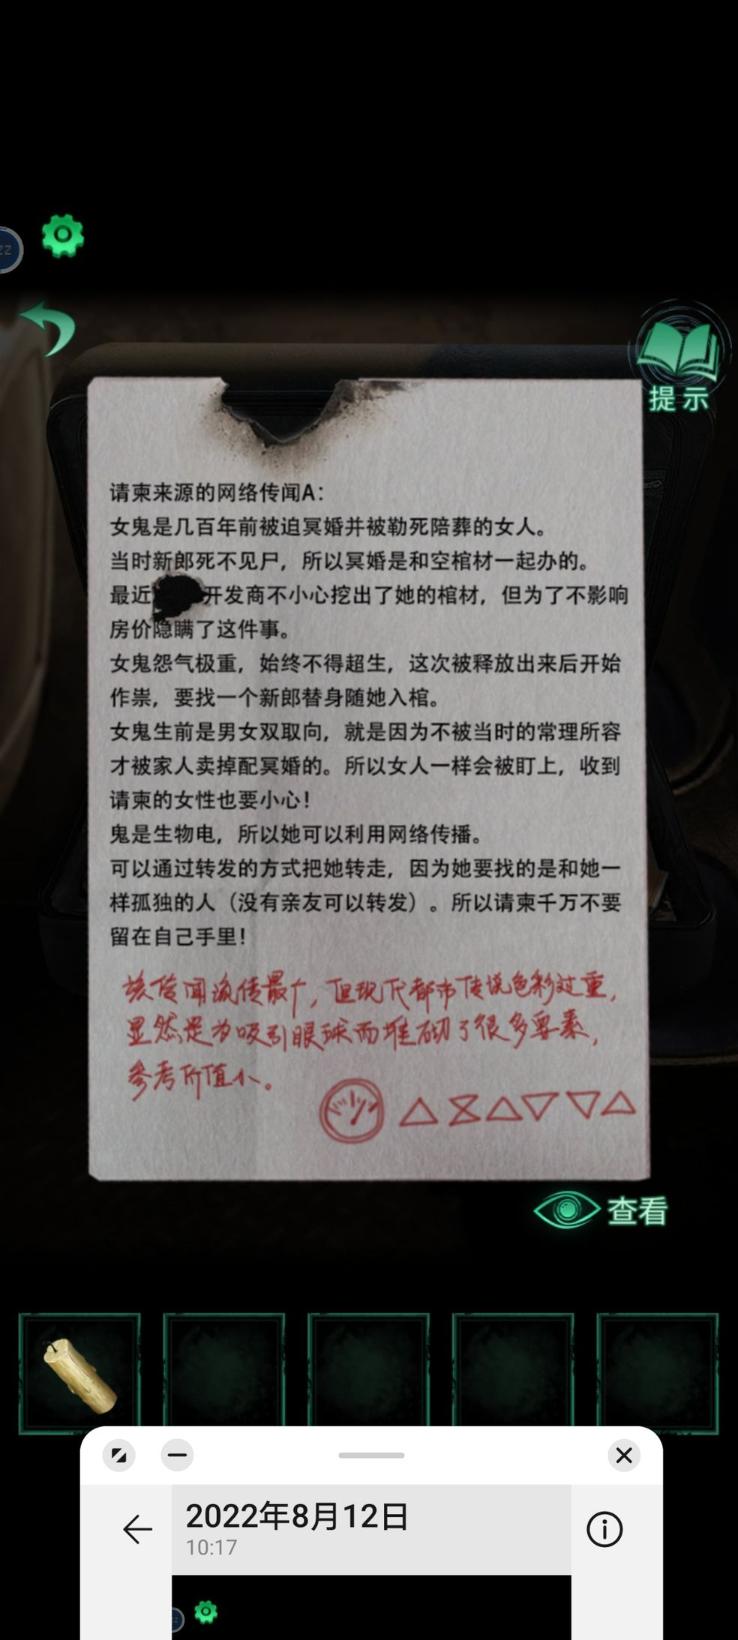 zz
提示
请柬来源的网络传闻A：
女鬼是几百年前被迫冥婚并被勒死陪葬的女人。
当时新郎死不见尸，所以冥婚是和空棺材一起办的。
最近 开发商不小心挖出了她的棺材，但为了不影响
房价隐瞒了这件事。
女鬼怨气极重，始终不得超生，这次被释放出来后开始
作祟，要找一个新郎替身随她入棺。
女鬼生前是男女双取向，就是因为不被当时的常理所容
才被家人卖掉配冥婚的。所以女人一样会被盯上，收到
请柬的女性也要小心！
鬼是生物电，所以她可以利用网络传播。
可以通过转发的方式把她转走，因为她要找的是和她一
样孤独的人（没有亲友可以转发）。所以请柬千万不要
留在自己手里！
该传闻流传最广，但现代都市传说色彩过重，
显然是为吸引眼球而堆砌了很多要素，
参考价值小。
查看
2022年8月12日
10:17